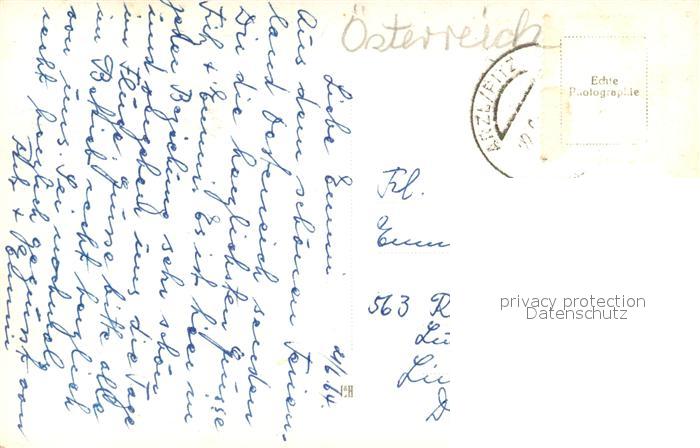 Österreich
ARZL/PITZ
Echte
Photographie
21/6. 64.
Liebe Emmi
Aus dem schönen Ferien-
land Österreich senden
Dir die herzlichsten Grüsse
Fritz + Emmi. Es ist hier in
jeder Beziehung sehr schön
und vergehen uns die Tage
im Fluge, grüsse bitte alle
im Betrieb recht herzlich
von uns. Sei nochmals
recht herzlich gegrüsst von
Fritz + Emmi
Frl.
Emm
563 R
Lü
Li
D
privacy protection
Datenschutz